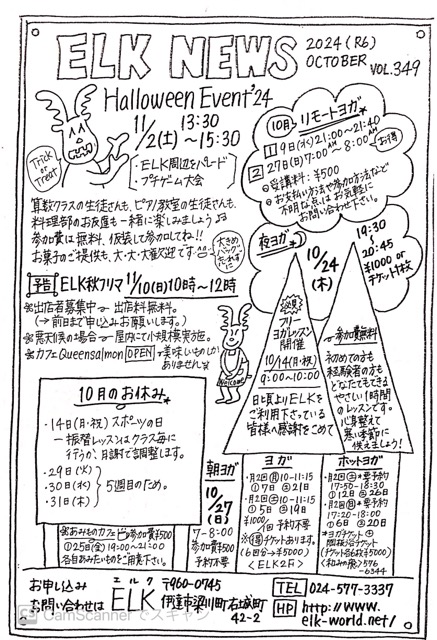 ELK NEWS
2024(R6)
OCTOBER
VOL.349
Halloween Event'24
11/2(土) 13:30~15:30
・ELK周辺をパレード
・プチゲーム大会
Trick or Treat
算数クラスの生徒さんも、ピアノ教室の生徒さんも、
料理部のお友達も一緒に楽しみましょう♪
参加費は無料、仮装して参加してね!!
お菓子のご提供も、大・大・大歓迎です
大きめバッグわすれずに
予告 ELK秋フリマ 11/10(日)10時~12時
出店者募集中→出店料無料。
(→前日まで申し込みお願いします。)
荒天候の場合→屋内にて小規模実施。
カフェQueensalmon OPEN 美味しいものしかありませんよ
Welcome
10月 リモートヨガ
1 9日(水)21:00~21:40
2 27日(日)7:00AM~8:00AM お得
受講料:¥500
お支払い方法や参加方法など
不明な点はお気軽に
お問い合わせ下さい。
夜ヨガ
10/24(木)
19:30~20:45
¥1000 or
チケット1枚
フリー
ヨガレッスン
開催
10/14(月・祝)
9:00~10:00
日頃よりELKを
ご利用下さっている
皆様へ感謝をこめて
参加費無料
初めての方も
経験者の方も
どなたでもできる
やさしい1時間
のレッスンです。
心身整えて
寒い季節に
供えましょう!
10月のお休み
・14日(月・祝)スポーツの日
→振替レッスンはクラス毎に
行うか、月謝で調整します。
・29日(火)
・30日(水)
・31日(木)
5週目のため。
朝ヨガ
10/27(日)
7-8:00
参加費¥500
予約不要
ヨガ
・月2回(月)10-11:15
①7日 ②21日
・月2回(土)10-11:15
①5日 ②19日
¥1000/1回 予約不要
(得)チケットあります。
(6回分→¥5000)
<ELK2F>
ホットヨガ
・月2回(土)要予約
17:50-18:30
①12日 ②26日
・月2回(日)要予約
17:20-18:00
①6日 ②20日
ヨガチケット+
岩盤浴チケット
(チケット各6枚¥5000)
<和みの蔵>576-6344
あみものカフェ 参加費¥500
①25日(金)19:00~21:00
各自あみたいものをご用意下さい。
お申し込み
お問い合わせは
エルク
ELK
〒960-0745
伊達市梁川町右城町
42-2
TEL 024-577-3337
HP http://www.
elk-world.net/
CamScanner でスキャン